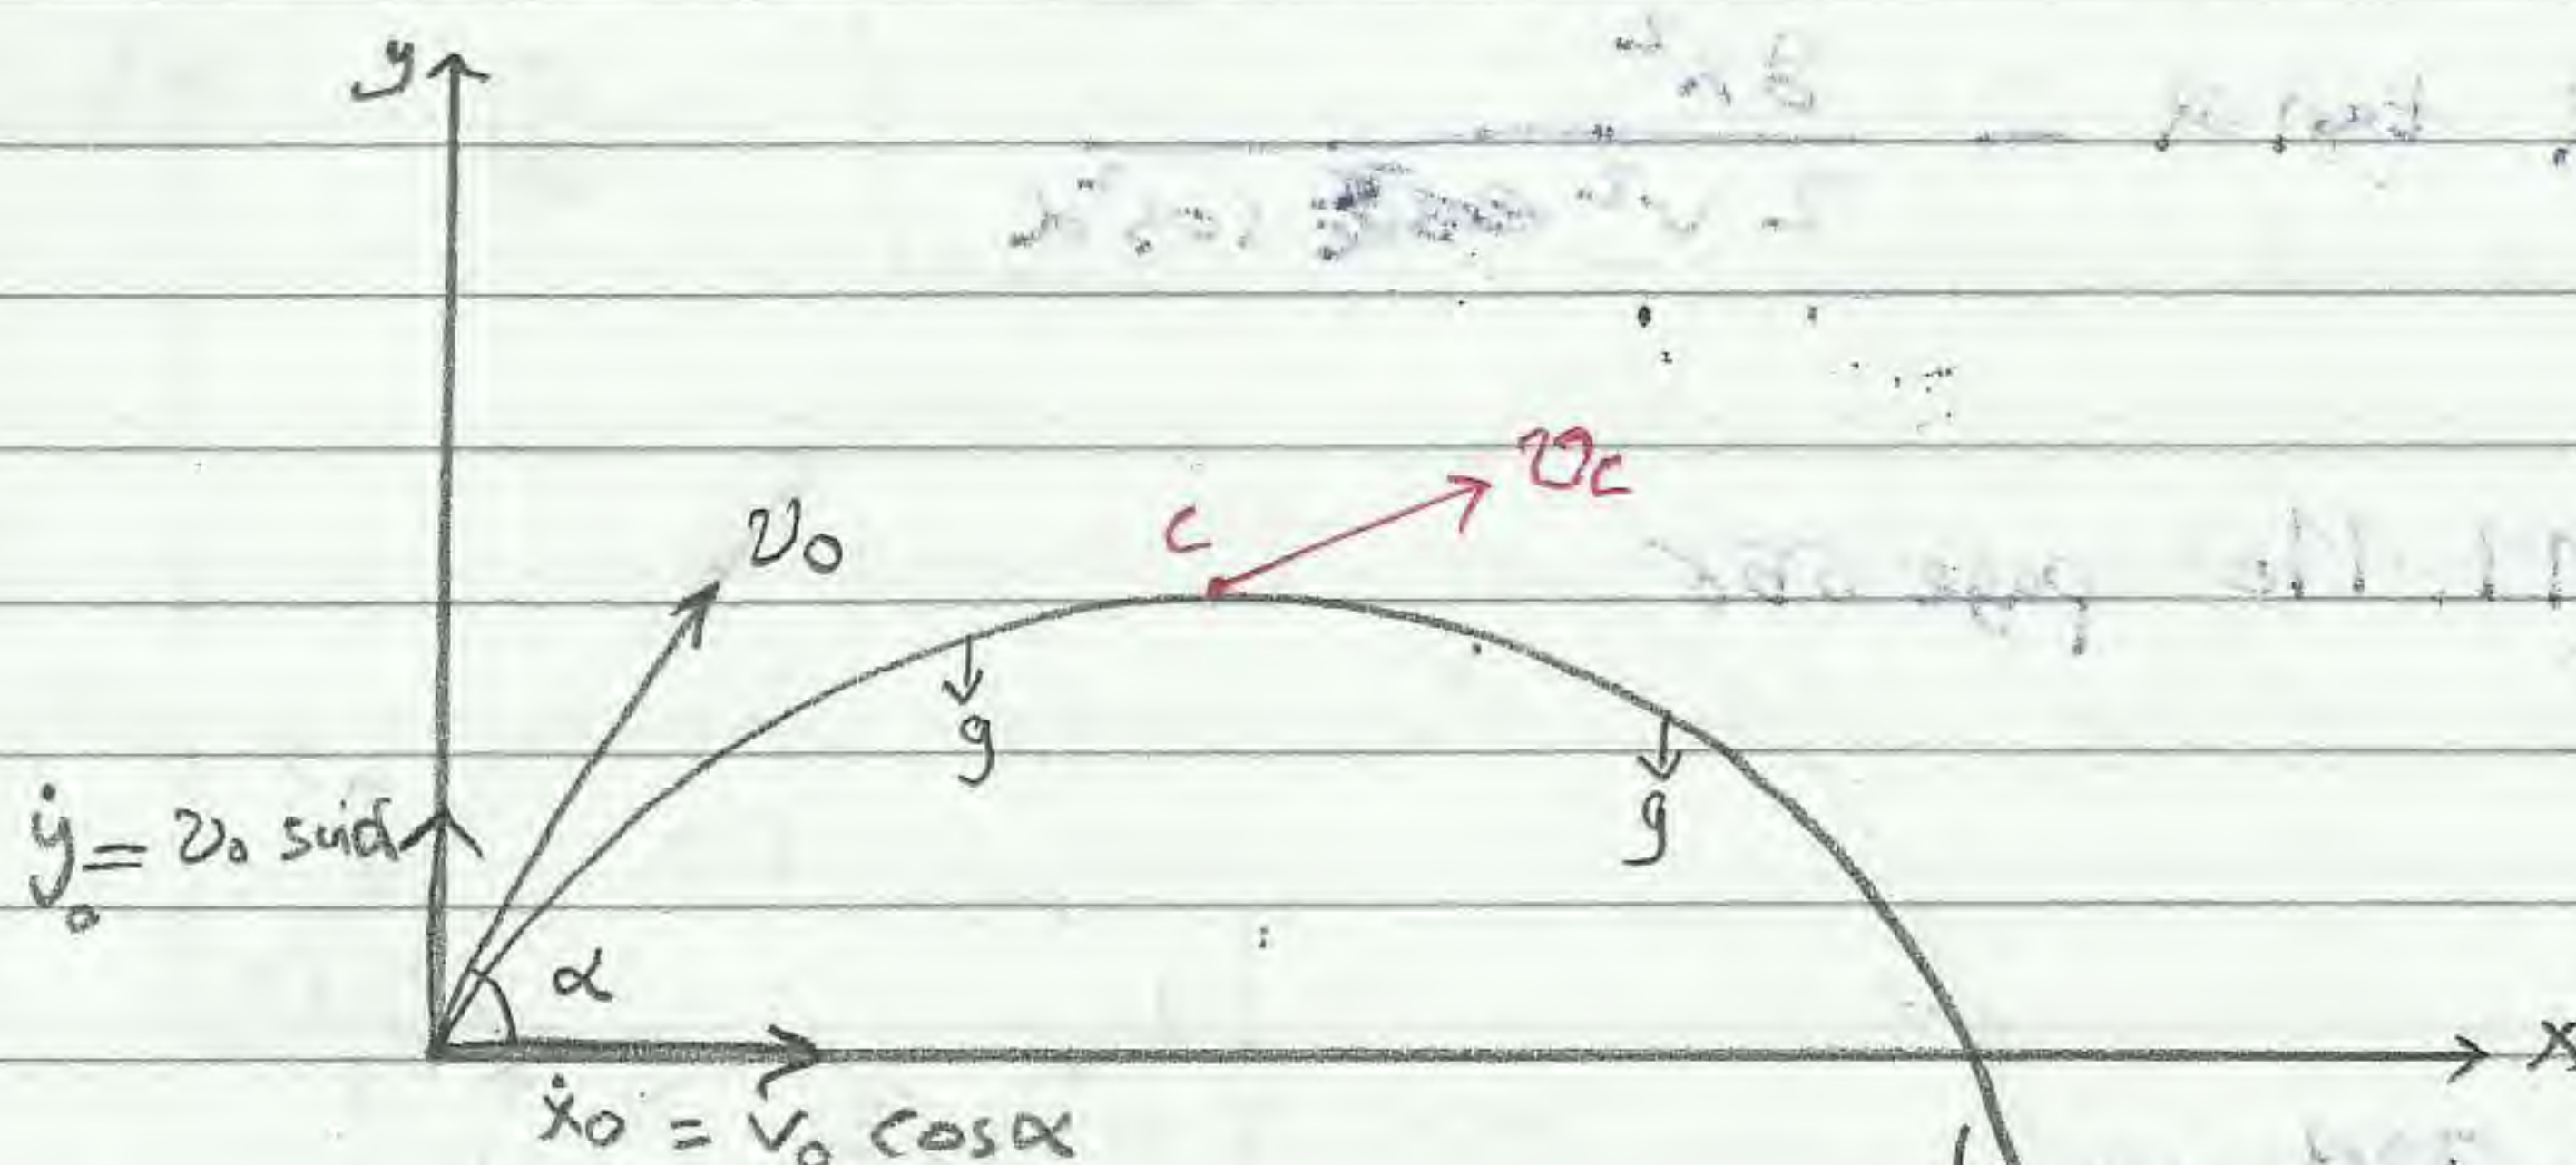 y
v₀
C
v_C
g
g
ẏ₀ = v₀ sinα
α
x
ẋ₀ = v₀ cosα